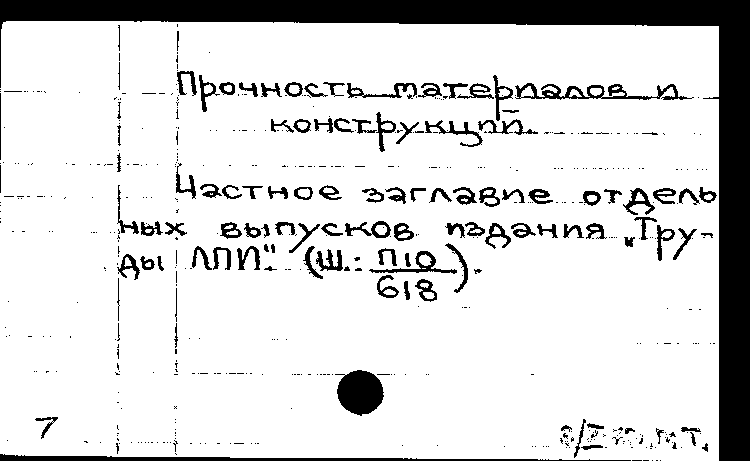 Прочность материалов и
конструкций.
Частное заглавие отдель
ных выпусков издания „Тру-
ды ЛПИ". (Ш.: П10/618).
7